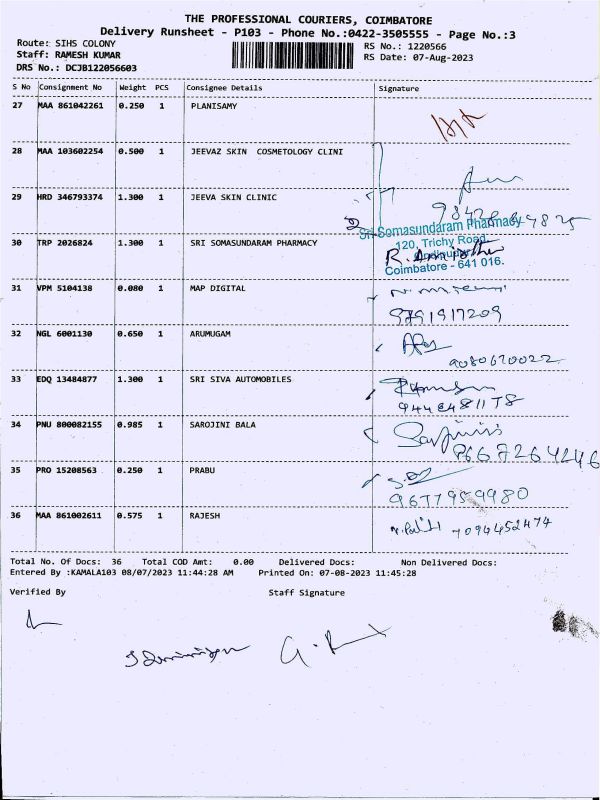 THE PROFESSIONAL COURIERS, COIMBATORE
Delivery Runsheet - P103 - Phone No.:0422-3505555 - Page No.:3
Route: SIHS COLONY
RS No.: 1220566
Staff: RAMESH KUMAR
RS Date: 07-Aug-2023
DRS No.: DCJB122056603
S No Consignment No Weight PCS Consignee Details Signature
27 MAA 861042261 0.250 1 PLANISAMY
28 MAA 103602254 0.500 1 JEEVAZ SKIN COSMETOLOGY CLINI
29 HRD 346793374 1.300 1 JEEVA SKIN CLINIC
Sri Somasundaram Pharmacy
30 TRP 2026824 1.300 1 SRI SOMASUNDARAM PHARMACY
120, Trichy Road,
Coimbatore - 641 016.
31 VPM 5104138 0.080 1 MAP DIGITAL
9791917209
32 NGL 6001130 0.650 1 ARUMUGAM
9080670022
33 EDQ 13484877 1.300 1 SRI SIVA AUTOMOBILES
34 PNU 800082155 0.985 1 SAROJINI BALA
Sarojini
35 PRO 15208563 0.250 1 PRABU
9677959980
36 MAA 861002611 0.575 1 RAJESH
7094452474
Total No. Of Docs: 36 Total COD Amt: 0.00 Delivered Docs: Non Delivered Docs:
Entered By :KAMALA103 08/07/2023 11:44:28 AM Printed On: 07-08-2023 11:45:28
Verified By Staff Signature